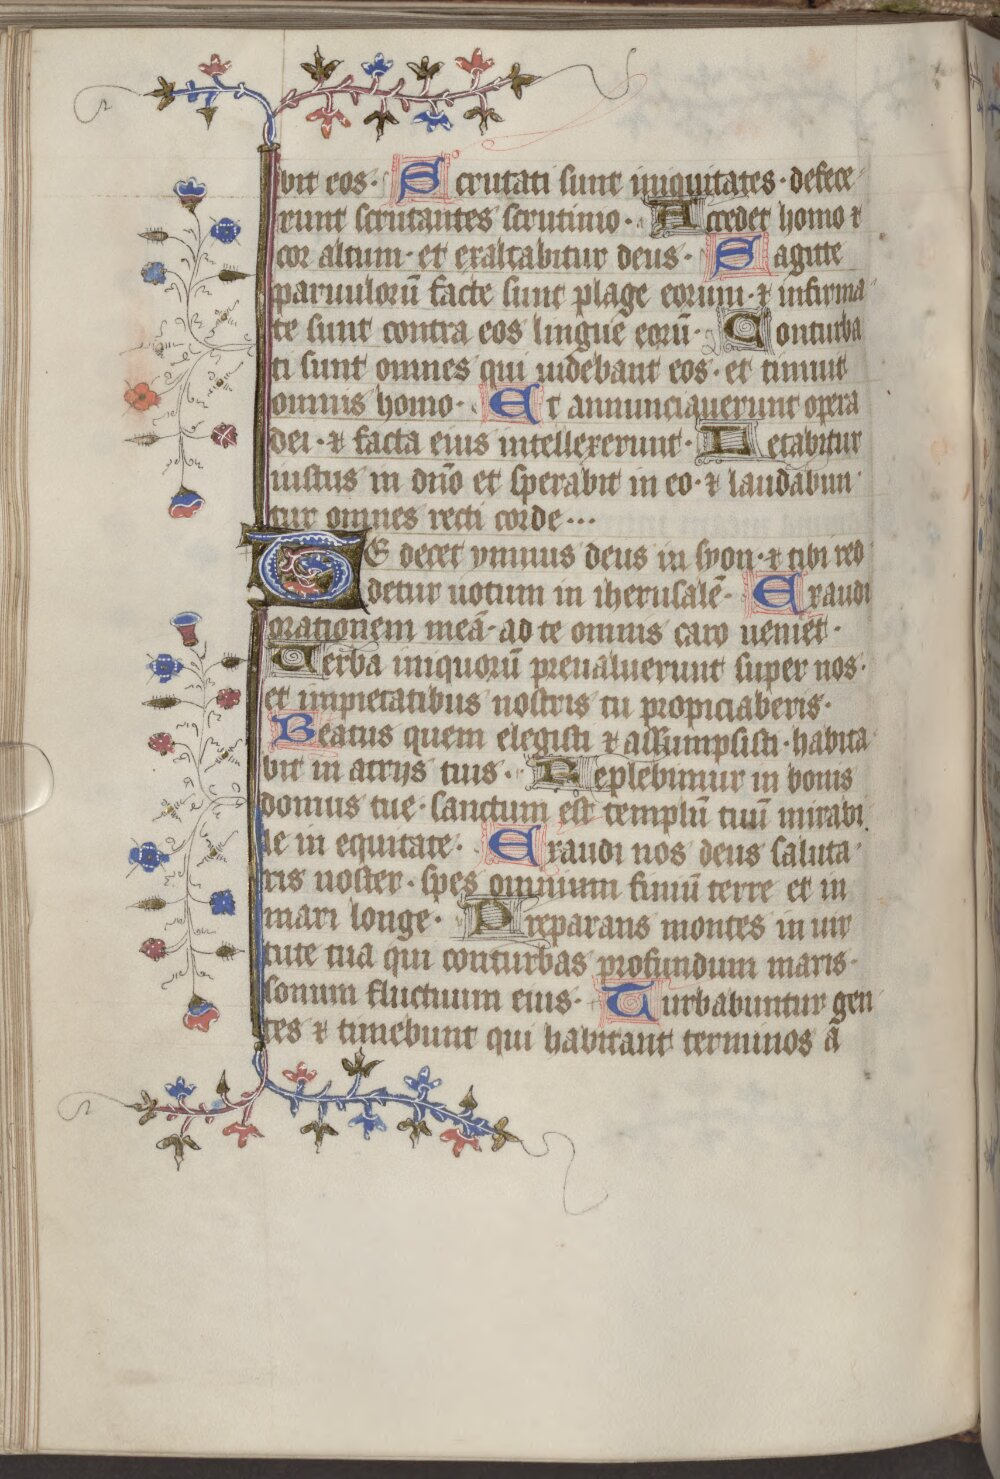 bit eos. Scrutati sunt iniquitates. defece
runt scrutantes scrutinio. Accedet homo ⁊
cor altum. et exaltabitur deus. Sagitte
paruuloꝝ̄ facte sunt plage eorum. ⁊ infirma
te sunt contra eos lingue eorū. Conturba
ti sunt omnes qui uidebant eos. et timuit
omnis homo. Et annunciauerunt opera
dei. ⁊ facta eius intellexerunt. Letabitur
iustus in dn̄o et sperabit in eo. ⁊ laudabun
tur omnes recti corde...
TE decet ymnus deus in syon. ⁊ tibi red
detur uotum in iherusalē. Exaudi
orationem meā. ad te omnis caro ueniet.
Uerba iniquorū preualuerunt super nos.
et impietatibus nostris tu propiciaberis.
Beatus quem elegisti ⁊ assumpsisti. habita
bit in atrijs tuis. Replebimur in bonis
domus tue. sanctum est templū tuū mirabi
le in equitate. Exaudi nos deus saluta
ris noster. spes omnium finiū terre et in
mari longe. Preparans montes in uir
tute tua qui conturbas profundum maris.
sonum fluctuum eius. Turbabuntur gen
tes ⁊ timebunt qui habitant terminos a